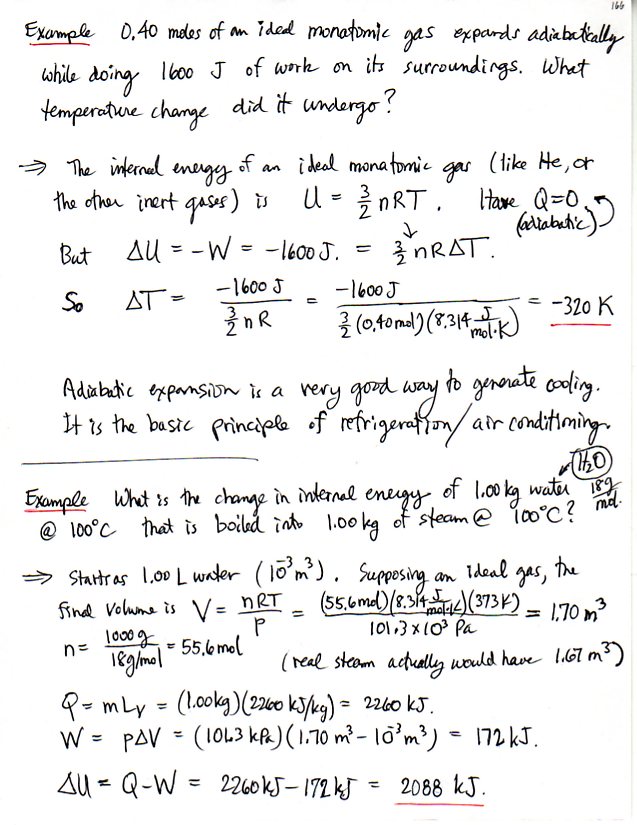 166
Example 0.40 moles of an ideal monatomic gas expands adiabatically
while doing 1600 J of work on its surroundings. What
temperature change did it undergo?
⇒ The internal energy of an ideal monatomic gas (like He, or
the other inert gases) is U = 3/2 nRT. Have Q=0
(adiabatic)
But ΔU = -W = -1600 J. = 3/2 nRΔT.
So ΔT = -1600 J / (3/2 nR) = -1600 J / (3/2 (0.40 mol)(8.314 J/mol·K)) = -320 K
Adiabatic expansion is a very good way to generate cooling.
It is the basic principle of refrigeration/air conditioning.
H2O
18 g/mol.
Example What is the change in internal energy of 1.00 kg water
@ 100°C that is boiled into 1.00 kg of steam @ 100°C?
⇒ Starts as 1.00 L water (10⁻³ m³). Supposing an ideal gas, the
final volume is V = nRT/P = (55.6 mol)(8.314 J/mol·K)(373 K) / 101.3 × 10³ Pa = 1.70 m³
n = 1000 g / 18 g/mol = 55.6 mol
(real steam actually would have 1.67 m³)
Q = mLv = (1.00 kg)(2260 kJ/kg) = 2260 kJ.
W = pΔV = (101.3 kPa)(1.70 m³ - 10⁻³ m³) = 172 kJ.
ΔU = Q-W = 2260 kJ - 172 kJ = 2088 kJ.